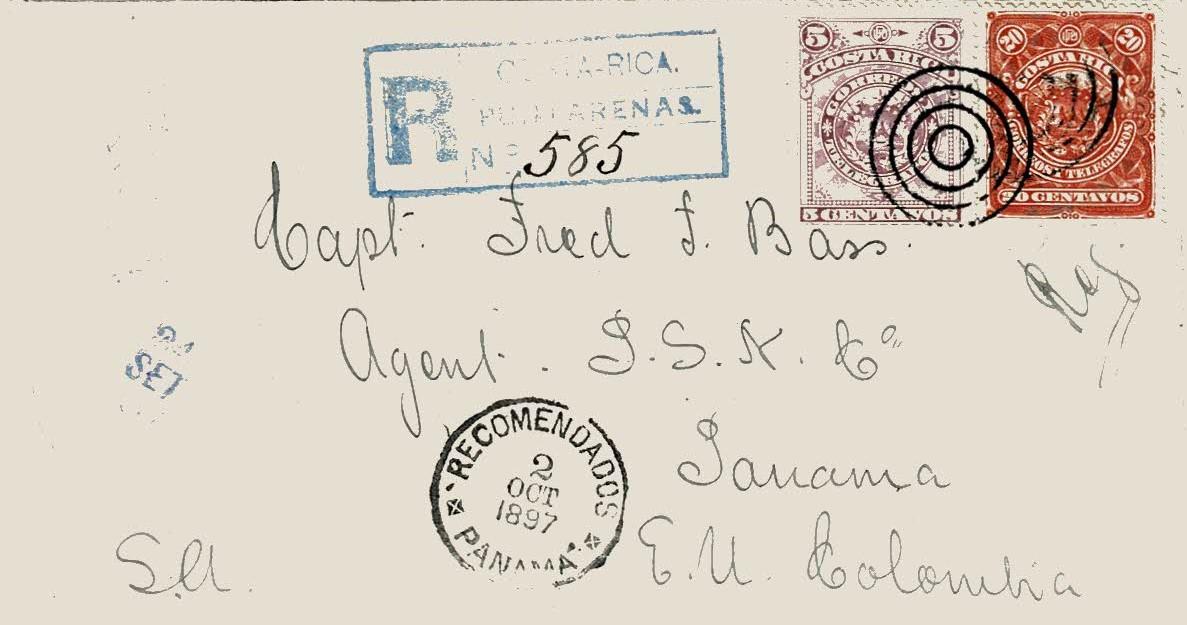 5 5
COSTA RICA
5 CENTAVOS
20 UPU 20
COSTA RICA
CORREOS Y TELEGRAFOS
20 CENTAVOS
COSTA-RICA.
R PUNTARENAS.
Nº 585
Capt. Fred F. Bass.
Reg
Agent. P.S.N. Cº
24
SET
Panama
RECOMENDADOS
2
OCT
1897
PANAMA
E.U. Colombia
S.A.